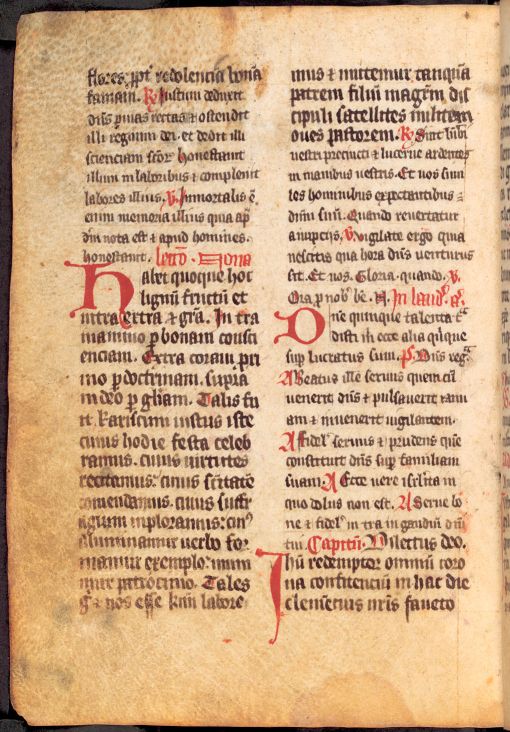 flores. ppt redolencia bona
famam. R Iustum deduxit
dns p uias rectas et ostendit
illi regnum dei. et dedit illi
scienciam scor honestauit
illum in laboribus et compleuit
labores illius. v. Inmortalis e
enim memoria illius quia ap
dm nota est et apud homines.
honestauit. lctio. Nona
Habet quoque hoc
lignu fructu et
intra extra et
In tra
manimo p bonam consci
enciam. Extra coram pri
mo p doctrinam. supra
in deo p gliam. Talis fu
it Karissimi iustus iste
cuius hodie festa celeb
ramus. cuius uirtutes
recitamus: cuius scitate
comendamus. cuius suffr
agium inploramus: cui
alluminamur uerbo for
mamur exemplo: mun
imur patrocinio. Tales
et nos esse kmi labore
mus et nitemur tanqua
patrem filiu magrm dis
cipuli satellites militem
oues pastorem. R Sint lubi
vestri precincti et lucerne ardentes
in manibus uestris. Et uos simi
les hominibus expectantibus
dnm suu. Quando reuertatur
a nupciis. v. vigilate ergo quia
nescitis qua hora dns uenturus
sit. Et uos. Gloria. quando. v.
Ora p nob be n. In laud. a.
Dne quinque talenta t
disti m ecce alia quique
sup lucratus sum. p. Dns reg
A Beatus ille seruus quem cu
uenerit dns et pulsauerit ianu
am et inuenerit uigilantem.
A fidel seruus et prudens que
constituit dns sup familiam
suam A Ecce uere isrlita in
quo dolus non est. A Serue bo
ne et fidel in tra in gaudiu dni
tui. Capitm. Dilectus deo.
Ihu redemptor omnium coro
na confitencium in hac die
clemencius nris faueto